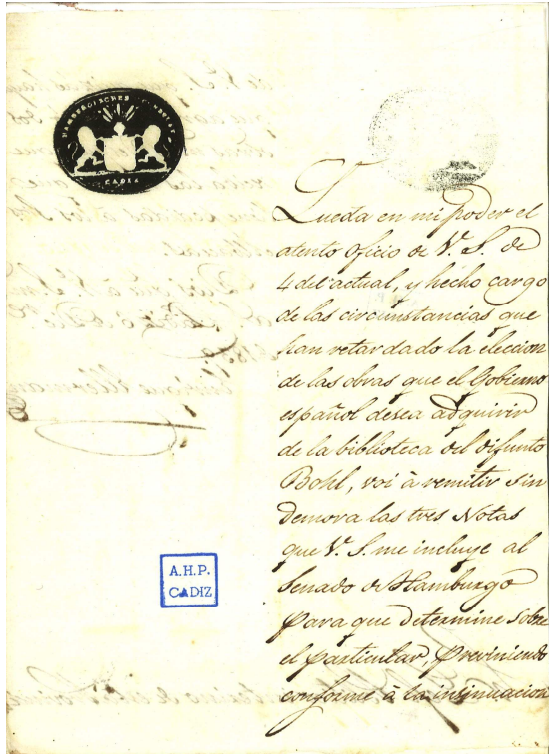 HAMBURGISCHES CONSULAT
CADIZ
Queda en mi poder el
atento oficio de V. S. de
4 del actual, y hecho cargo
de las circunstancias que
han retardado la eleccion
de las obras que el Gobierno
español desea adquirir
de la biblioteca del difunto
Bohl, voi à remitir sin
demora las tres Notas
que V. S. me incluye al
Senado de Hamburgo
para que determine sobre
el particular, previniendo
conforme à la insinuacion
A.H.P.
CADIZ